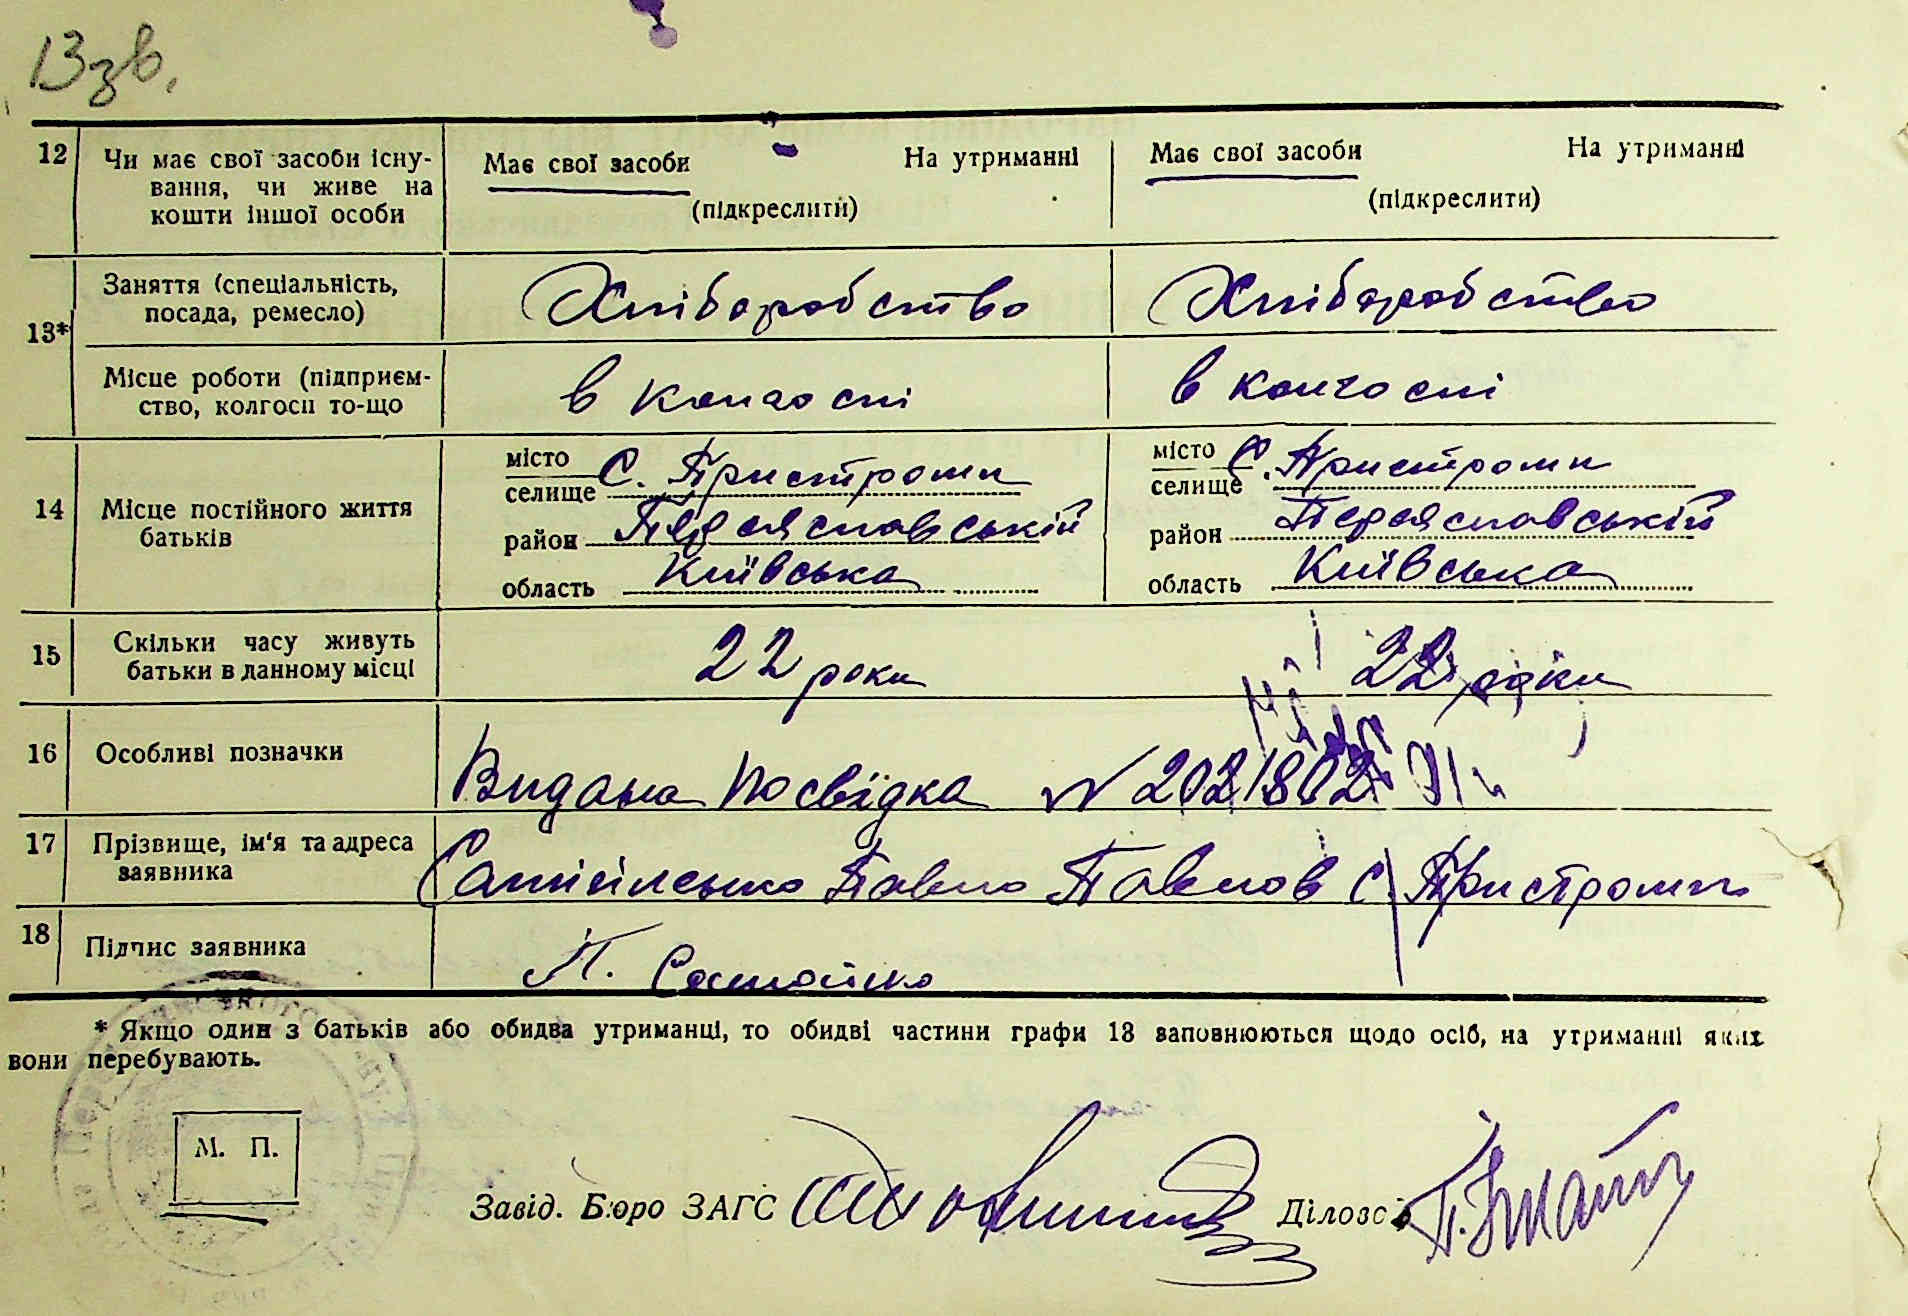 13 зв.
12 Чи має свої засоби існу- Має свої засоби На утриманні Має свої засоби На утриманні
вання, чи живе на
кошти іншої особи (підкреслити) (підкреслити)
13* Заняття (спеціальність, Хліборобство Хліборобство
посада, ремесло)
Місце роботи (підприєм- в колгоспі в колгоспі
ство, колгосп то-що
14 Місце постійного життя батьків
місто С. Пристроми місто С. Пристроми
селище селище
район Переяславській район Переяславській
область Київська область Київська
15 Скільки часу живуть 22 роки 22 роки
батьки в данному місці
16 Особливі позначки Видана посвідка N
17 Прізвище, ім'я та адреса Павло Павлов с. Пристроми
заявника
18 Підпис заявника П.
* Якщо один з батьків або обидва утриманці, то обидві частини графи 13 заповнюються щодо осіб, на утриманні яких
вони перебувають.
М. П.
Завід. Бюро ЗАГС Діловод